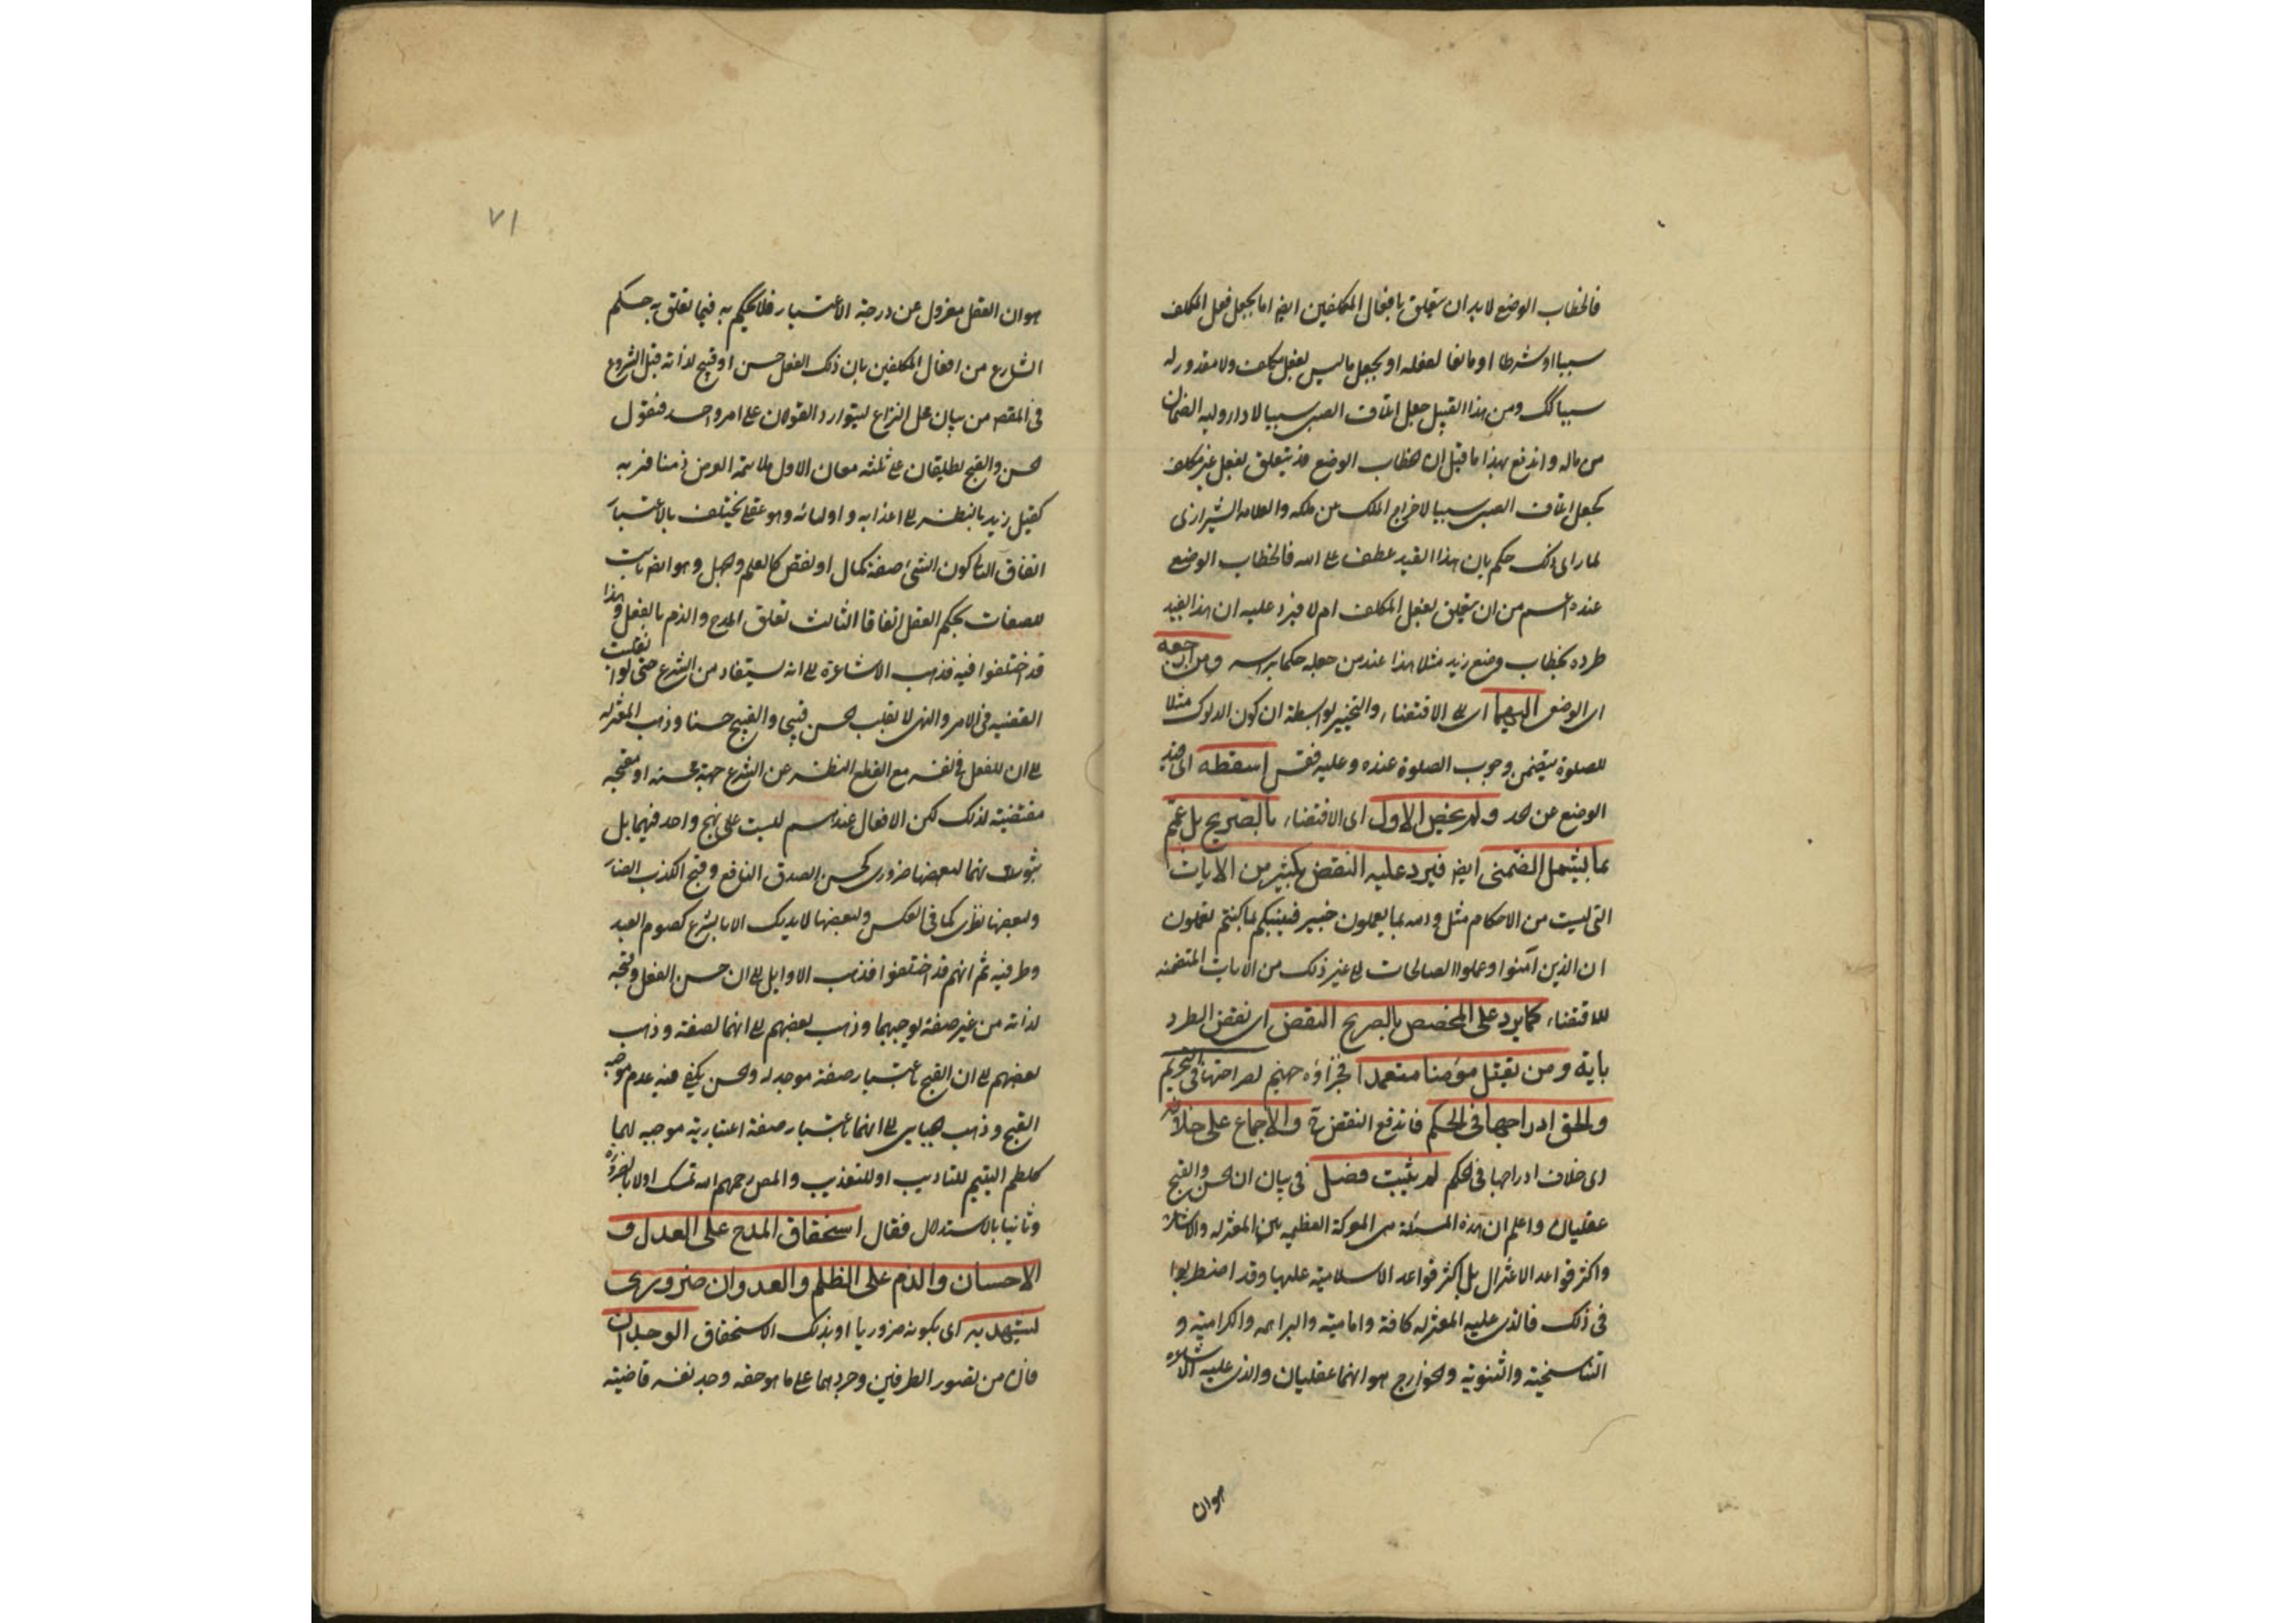 فالخطاب الوضع لابد ان يتعلق بافعال المكلفين ايضا اما بجعل فعل المكلف
سببا او شرطا او مانعا لفعله او بجعل ما ليس بفعل مكلف ولا مقدور له
سببا كك ومن هذا القبيل جعل اتلاف الصبى سببا لاداء وليه الضمان
من ماله واندفع بهذا ما قيل ان خطاب الوضع قد يتعلق بفعل غير مكلف
كجعل اتلاف الصبى سببا لاخراج الملك عن ملكه والعلامه الشيرازى
لما راى ذلك حكم بان هذا القيد عطف على الله فالخطاب الوضع
عنده اعم من ان يتعلق بفعل المكلف ام لا فيرد عليه ان هذا القيد
طرده بخطاب وضع زيد مثلا هذا عند من جعله حكما براسه ومن ارجعه
اى الوضع اليهما اى الى الاقتضاء والتخيير بواسطة ان كون الدلوك مثلا
للصلوة يتضمن وجوب الصلوة عنده وعليه فقس اسقطه اى قيد
الوضع عن الحد ولم يخص الاول اى الاقتضاء بالصريح بل عمم
بما يشمل الضمنى ايضا فيرد عليه النقض بكثير من الايات
التى ليست من الاحكام مثل والله بما يعملون خبير فينبئكم بما كنتم تعملون
ان الذين آمنوا وعملوا الصالحات الى غير ذلك من الايات المتضمنه
للاقتضاء كما يرد على المخصص بالصريح النقض اى نقض الطرد
باية ومن يقتل مؤمنا متعمدا فجزاؤه جهنم لصراحتها فى التحريم
والحق ادراجها فى الحكم فاندفع النقض ح والاجماع على خلافه
اى خلاف ادراجها فى الحكم لم يثبت فصل فى بيان ان الحسن والقبح
عقليان واعلم ان هذه المسئلة هى المعركة العظيمه بين المعتزله والاشاعرة
واكثر قواعد الاعتزال بل اكثر قواعد الاسلامية عليها وقد اضطربوا
فى ذلك فالذى عليه المعتزله كافة وامامية والبراهمه والكرامية و
التناسخية والثنوية والخوارج هو انهما عقليان والذى عليه الاشاعره
هو ان
٧١
هو ان العقل معزول عن درجة الاعتبار فلا يحكم به فيما تعلق به حكم
الشارع من افعال المكلفين بان ذلك الفعل حسن او قبيح لذاته قبل الشروع
فى المقصد من بيان محل النزاع ليتوارد القولان على امر واحد فنقول
الحسن والقبح يطلقان على ثلثه معان الاول ملائمة الغرض ومنافرته
كقتل زيد بالنظر الى اعدائه واوليائه وهو عقلى يختلف بالاعتبار
اتفاق الثانى كون الشئ صفة كمال او نقص كالعلم والجهل وهو ايضا ثابت
للصفات بحكم العقل اتفاقا الثالث تعلق المدح والذم بالفعل وهذا
قد اختلفوا فيه فذهب الاشاعرة الى انه يستفاد من الشرع حتى لو انقلبت
القضيه فى الامر والنهى لانقلب الحسن قبيحا والقبيح حسنا وذهب المعتزله
الى ان للفعل فى نفسه مع القطع النظر عن الشرع جهة محسنه او مقبحه
مقتضيته لذلك لكن الافعال عندهم ليست على نهج واحد فيهما بل
ثبوت هما لبعضها ضرورى كحسن الصدق النافع وقبح الكذب الضار
ولبعضها نظرى كما فى العكس ولبعضها لا يدرك الا بالشرع كصوم العيد
وطرفيه ثم انهم قد اختلفوا فذهب الاوايل الى ان حسن الفعل وقبحه
لذاته من غير صفة يوجبهما وذهب بعضهم الى انهما لصفة وذهب
بعضهم الى ان القبح باعتبار صفة موجبه له والحسن يكفى فيه عدم موجب
القبح وذهب الجبائى الى انهما باعتبار صفة اعتبارية موجبه لهما
كلطم اليتيم للتاديب او للتعذيب والمص رحمهم الله تمسك اولا بالضرورة
وثانيا بالاستدلال فقال استحقاق المدح على العدل و
الاحسان والذم على الظلم والعدوان ضرورى
يشهد به اى بكونه ضروريا او بذلك الاستحقاق الوجدان
فان من تصور الطرفين وجردهما على ما هو حقه وجد نفسه قاضية